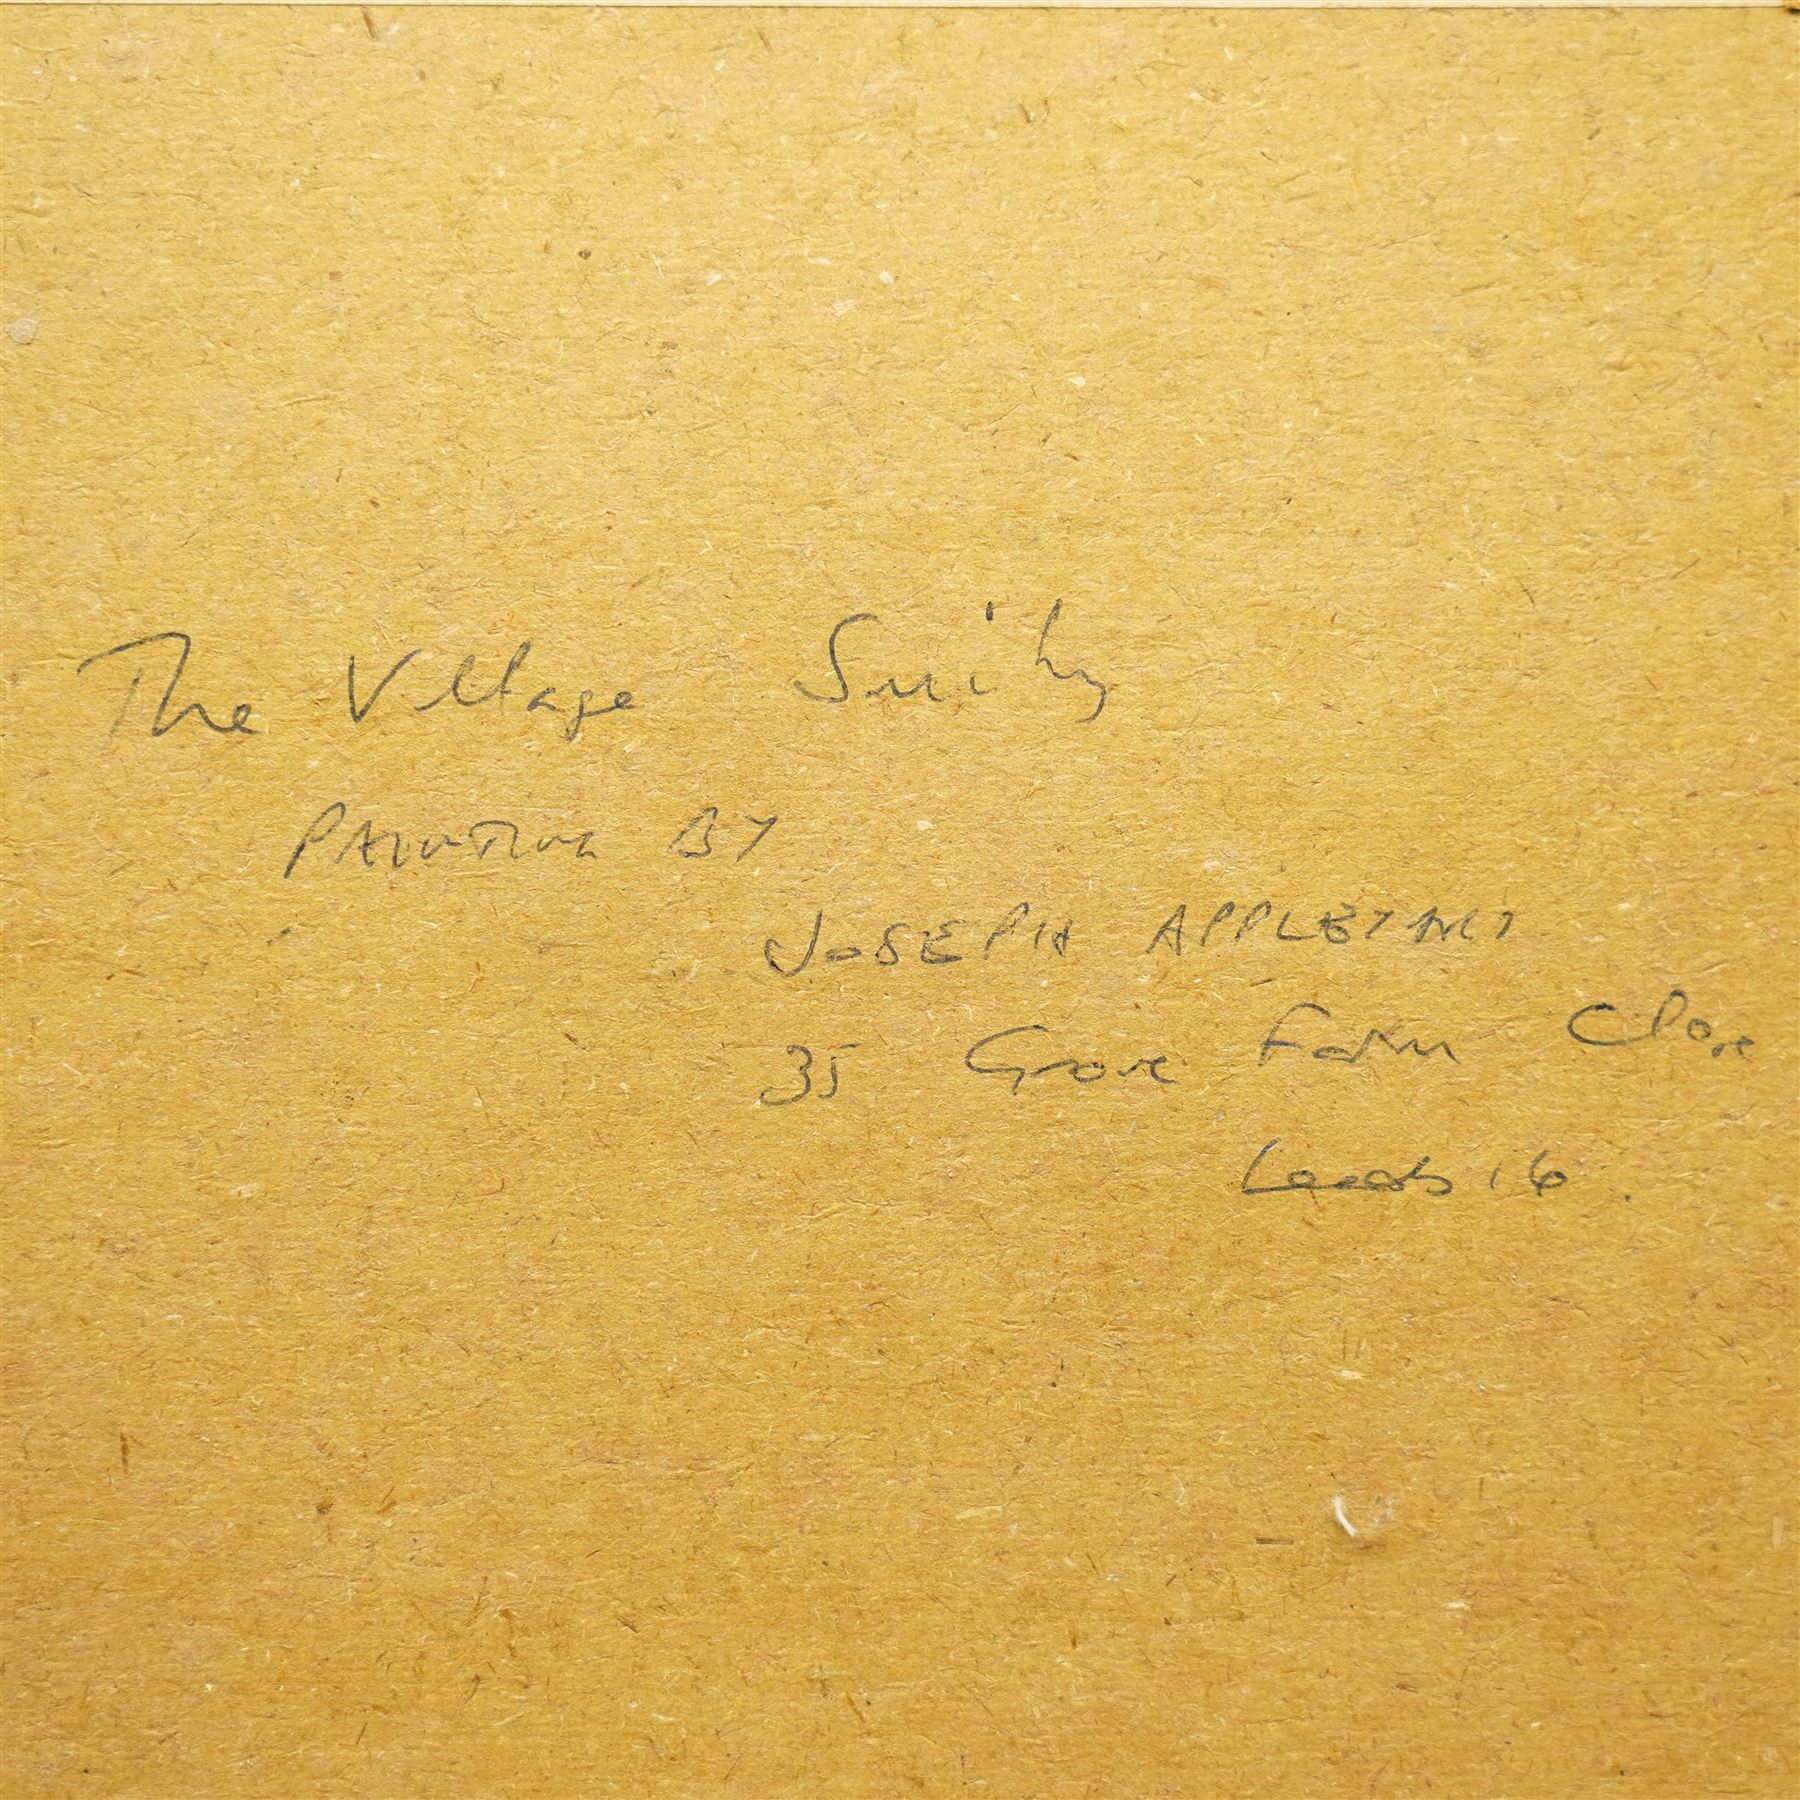 The Village Smithy
PAINTING BY
JOSEPH APPLEYARD
35 Grove Farm Close
Leeds 16.